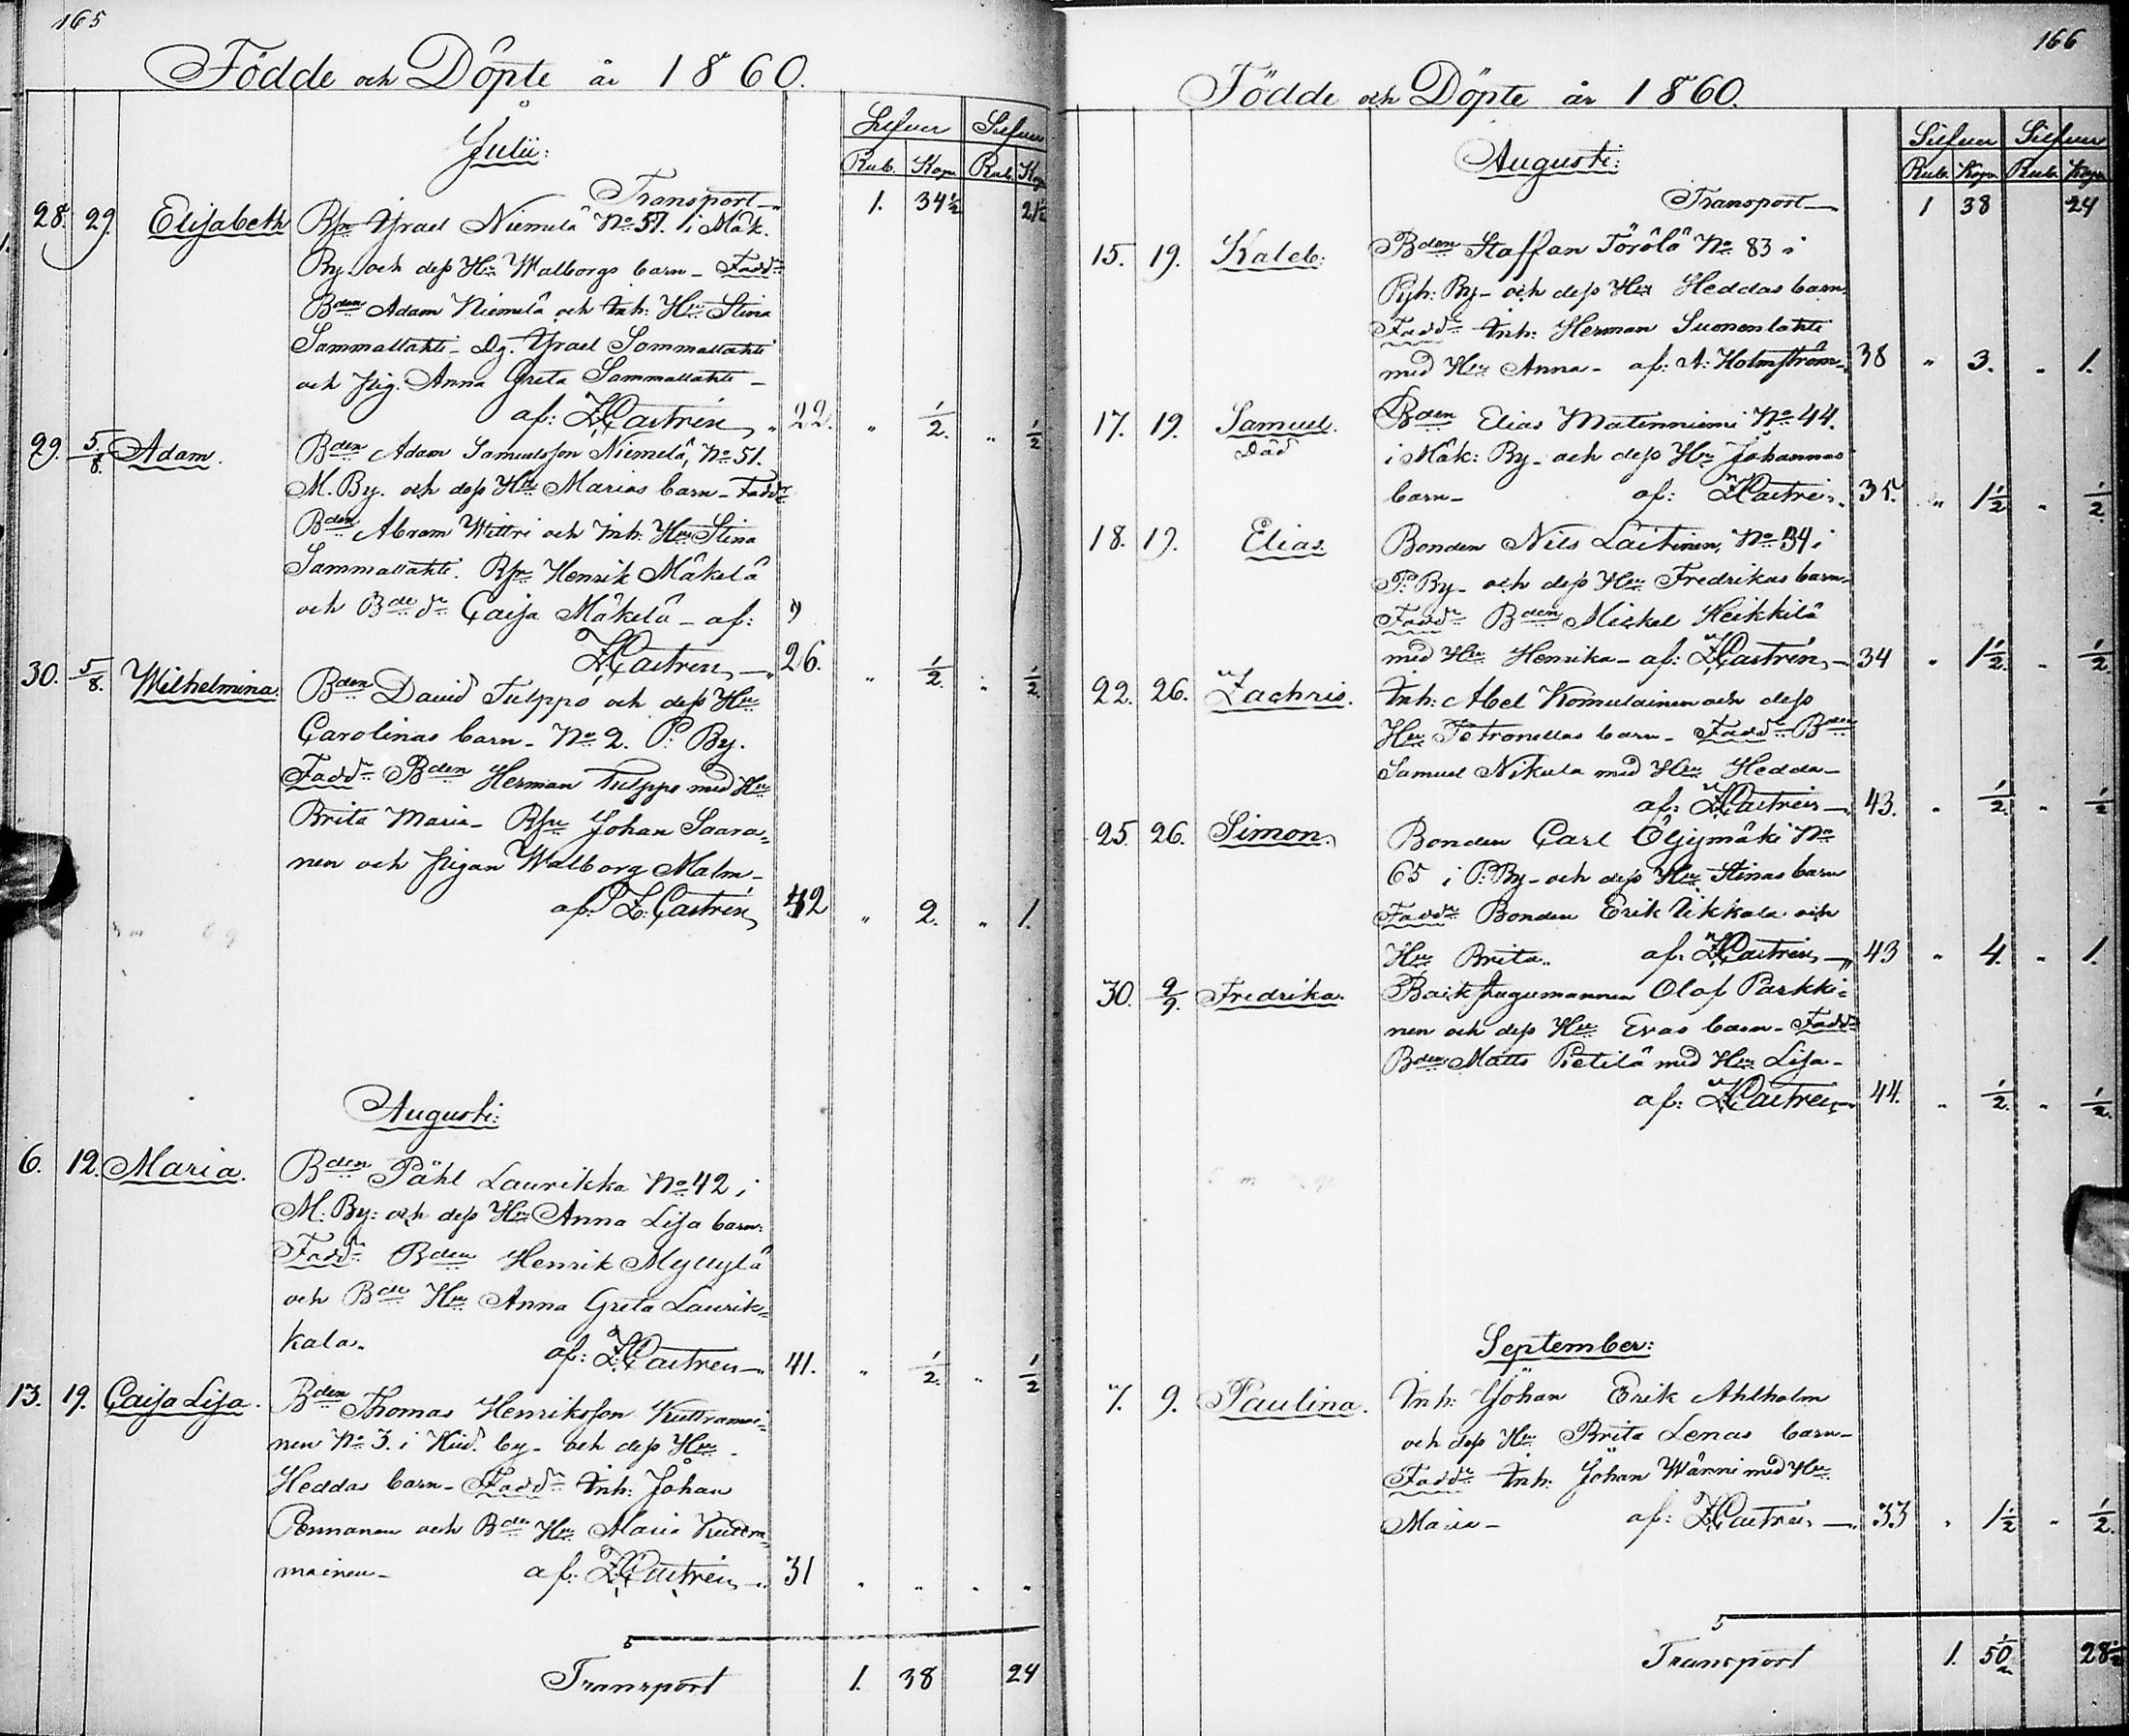 165
Födde och Döpte år 1860.
Julii:
Silfver Silfver
Rub. Kop. Rub. Kop.
Transport 1. 34½ 21½
28. 29. Elisabeth Bsn Israel Niemelä No 51. i Mäk.
By. och dess Hu Walborgs barn - Fadd:
Bden Adam Niemelä och Inh: Hu Stina
Sammallahti - Dg. Israel Sammallahti
och pig. Anna Greta Sammallahti -
af: Z. Castrén 22. " ½ " ½
29. 5/8. Adam. Bden Adam Samuelsson Niemelä, No 51.
M. By. och dess Hu Marias barn - Fadd:
Bden Abram Wittri och Inh: Hu Stina
Sammallahti. Bsn Henrik Mäkelä
och Bde dr Cajsa Mäkelä - af:
Z. Castrén 26. " ½ " ½
30. 5/8. Wilhelmina. Bden David Tulppo och dess Hu
Carolinas barn - No 2. P. By.
Fadd: Bden Herman Tulppo med Hu
Brita Maria - Bsn Johan Saara=
nen och pigan Walborg Malm -
af: Z. Castrén 42 " 2. " 1.
Augusti:
6. 12. Maria. Bden Påhl Laurikka No 42 i
M: By: och dess Hu Anna Lisa barn:
Fadd: Bden Henrik Myllylä
och Bde Hu Anna Greta Laurik=
kala. af: Z. Castrén 41. " ½ " ½
13. 19. Cajsa Lisa. Bden Thomas Henriksson Kuttramoi=
nen No 3. i Kiid. by - och dess Hu
Heddas barn - Fadd: Inh: Johan
Pennanen och Bde Hu Maria Kuttra=
moinen - af: Z. Castrén 31 " " " "
5
Transport 1. 38 24
166
Födde och Döpte år 1860.
Augusti:
Silfver Silfver
Rub. Kop. Rub. Kop.
Transport 1 38 24
15. 19. Kaleb. Bden Staffan Törölä No 83 i
Pyh: By - och dess Hu Heddas barn
Fadd: Inh: Herman Suonenlahti
med Hu Anna - af: A: Holmström 38 " 3. " 1.
17. 19. Samuel. Bden Elias Matinniemi No 44.
Död i Mäk: By - och dess Hu Johannas
barn - af: Z. Castrén 35. " 1½ " ½
18. 19. Elias. Bonden Nils Laitinen, No 34 i
P: By - och dess Hu Fredrikas barn -
Fadd: Bden Mickel Heikkilä
med Hu Henrika - af: Z. Castrén 34 " 1½ " ½
22. 26. Zachris. Inh: Abel Komulainen och dess
Hu Petronellas barn - Fadd: Bden
Samuel Nikula med Hu Hedda -
af: Z. Castrén 43. " ½ " ½
25. 26. Simon. Bonden Carl Öljymäki No
65 i P: By - och dess Hu Stinas barn
Fadd: Bonden Erik Ukkola och
Hu Brita. af: Z. Castrén 43 " 4. " 1.
30. 2/9. Fredrika. Olof Parkki=
nen och dess Hu Evas barn - Fadd:
Bden Matts Pietilä med Hu Lisa -
af: Z. Castrén 44. " ½ " ½
September:
7. 9. Paulina. Inh: Johan Erik Ahlholm
och dess Hu Brita Lenas barn -
Fadd: Inh: Johan Wänni med Hu
Maria - af: Z. Castrén 33 " 1½ " ½
5
Transport 1. 50½ 28½